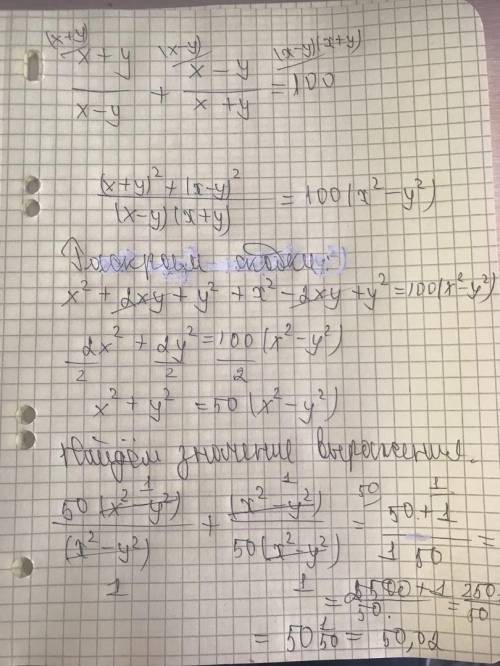 (x+y) (x-y) (x-y)(x+y)
x+y / x-y + x-y / x+y = 100
(x+y)² + (x-y)² / (x-y)(x+y) = 100(x²-y²)
Раскроем скобки:
x² + 2xy + y² + x² - 2xy + y² = 100(x²-y²)
2x²/2 + 2y²/2 = 100/2 (x²-y²)
x² + y² = 50(x²-y²)
Найдём значение выражения.
50(x²-y²) / (x²-y²) + (x²-y²) / 50(x²-y²) = 50/1 + 1/50 =
= 2500+1 / 50 = 250 / 50
= 50 1/50 = 50,02